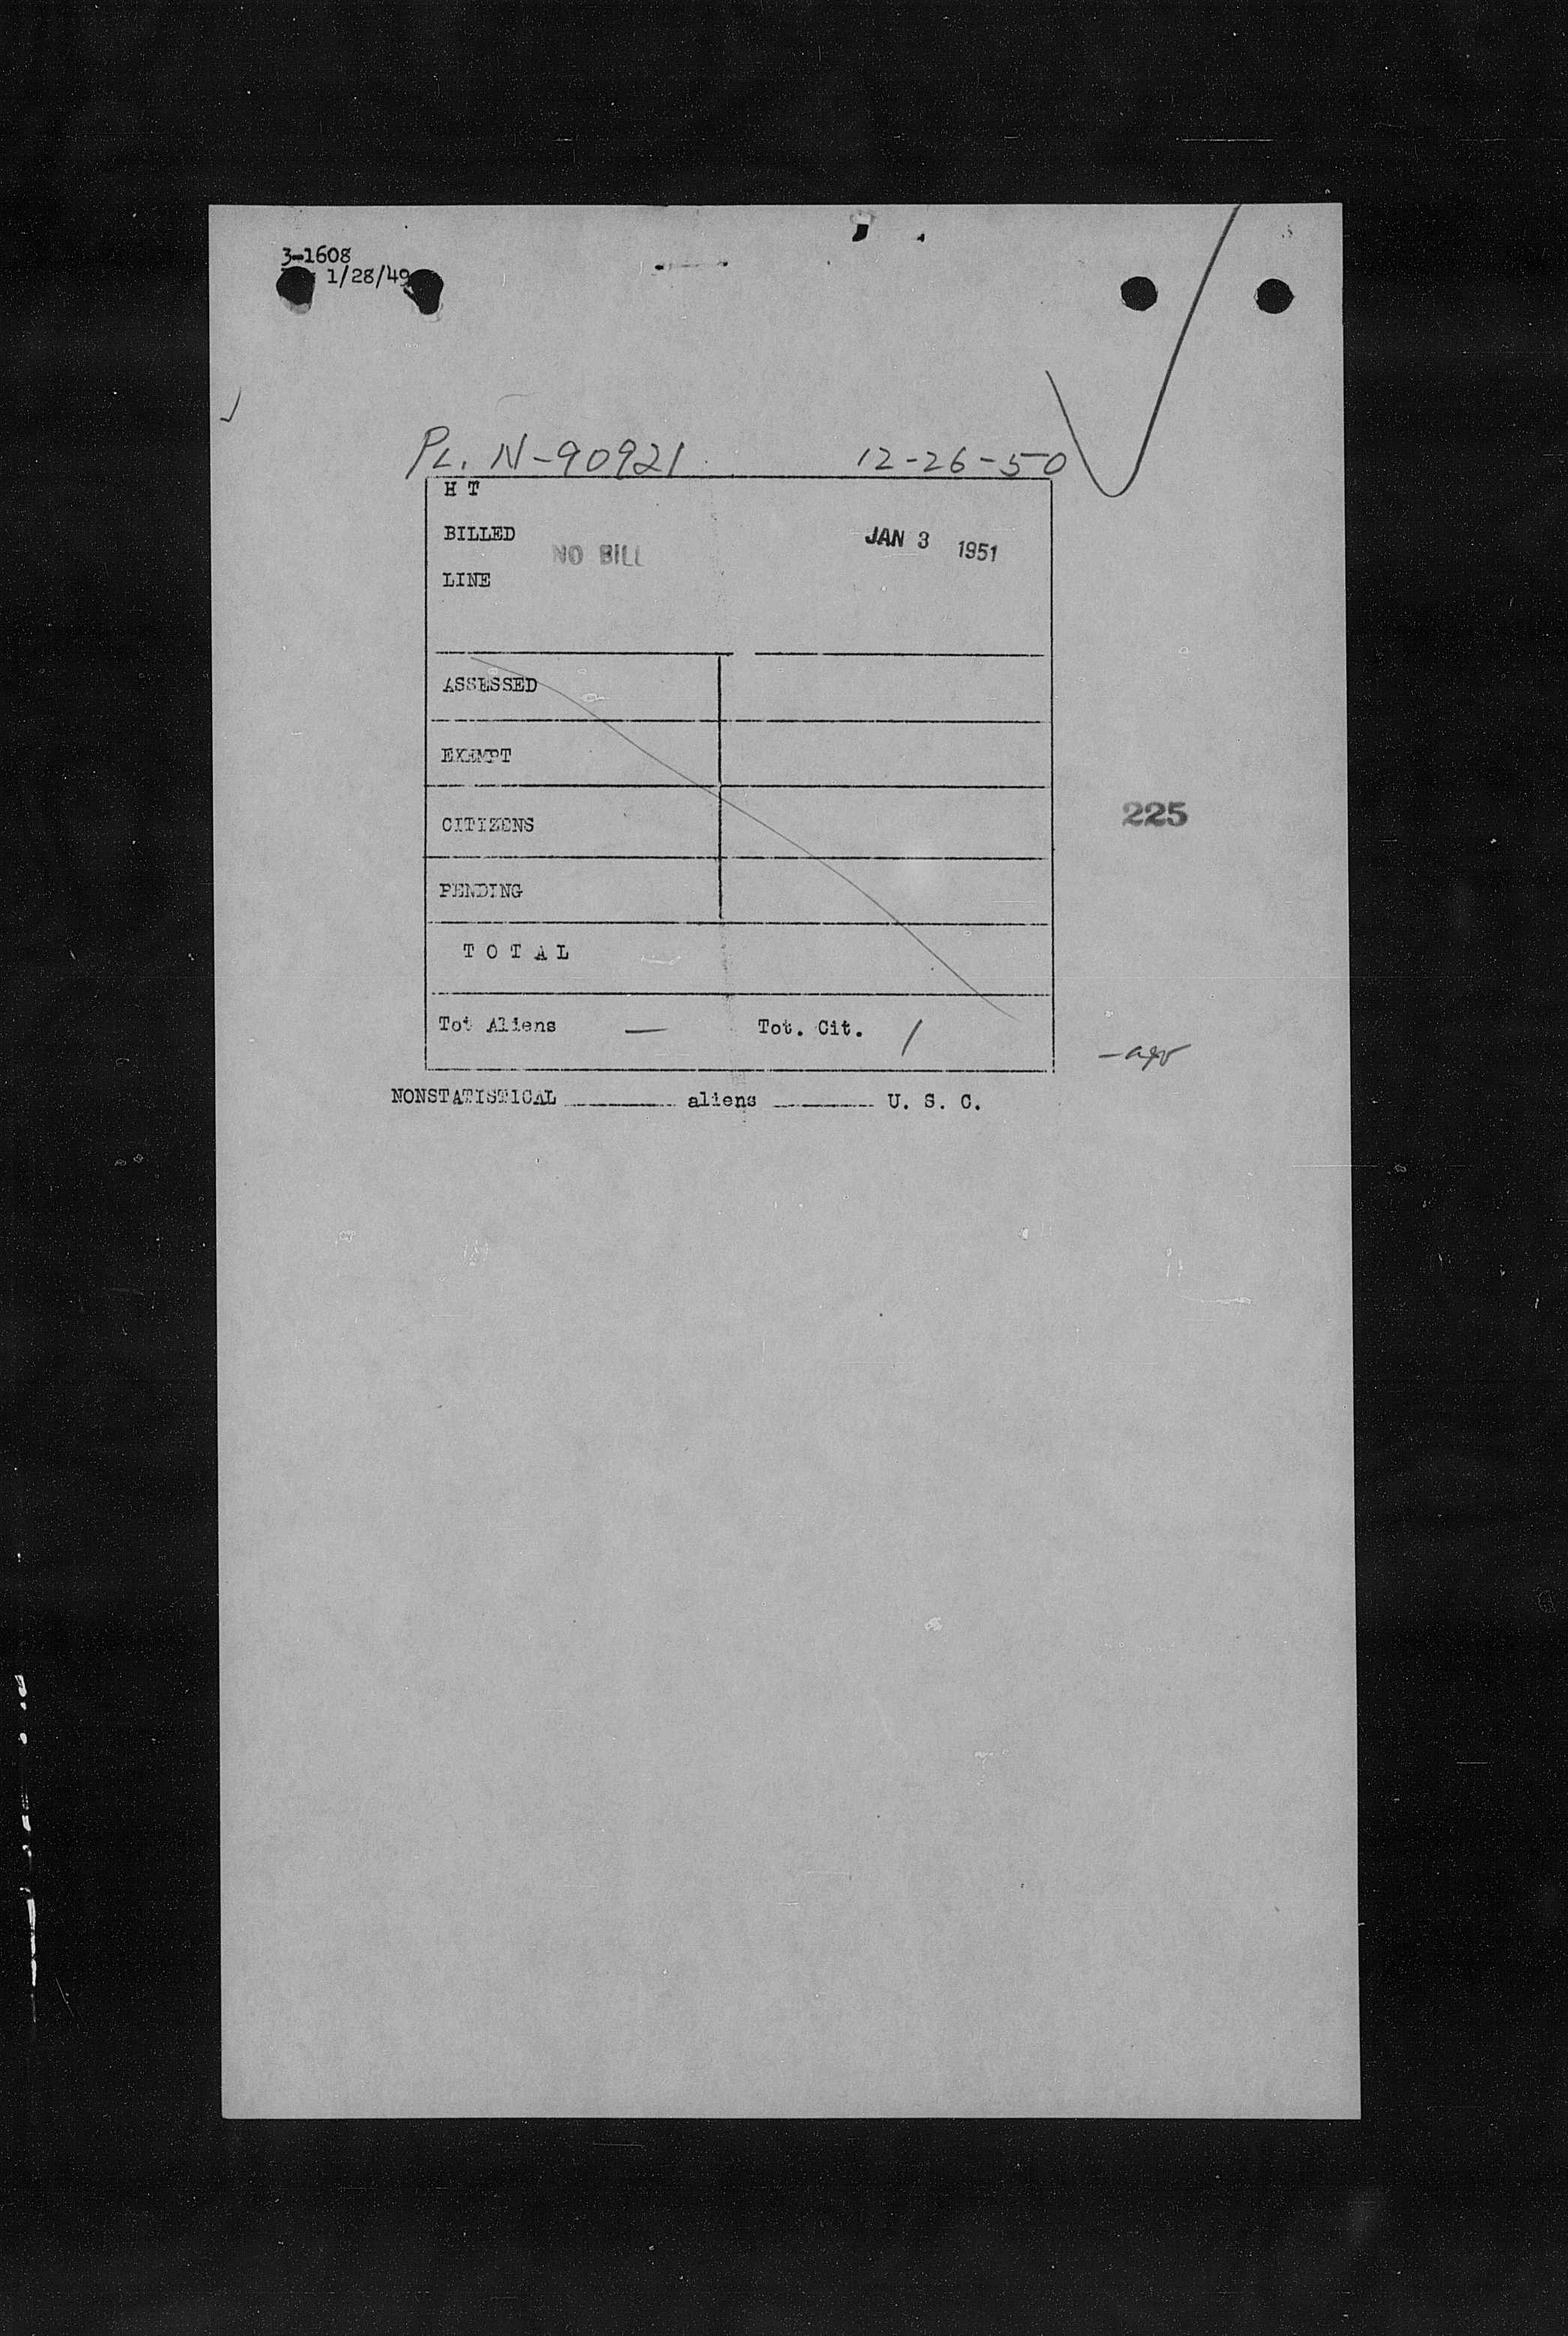 3-1608
1/28/49
PL. N-90921 12-26-50
H T
BILLED
NO BILL JAN 3 1951
LINE
ASSESSED
EXEMPT
225
CITIZENS
PENDING
T O T A L
Tot Aliens — Tot. Cit. /
NONSTATISTICAL ______ aliens ______ U. S. C.